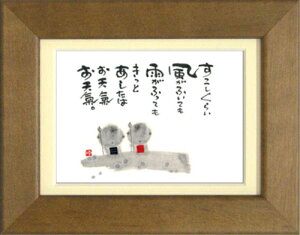 すこしくらい
風がふいても
雨がふっても
きっと
あしたは
お天氣
お天氣。